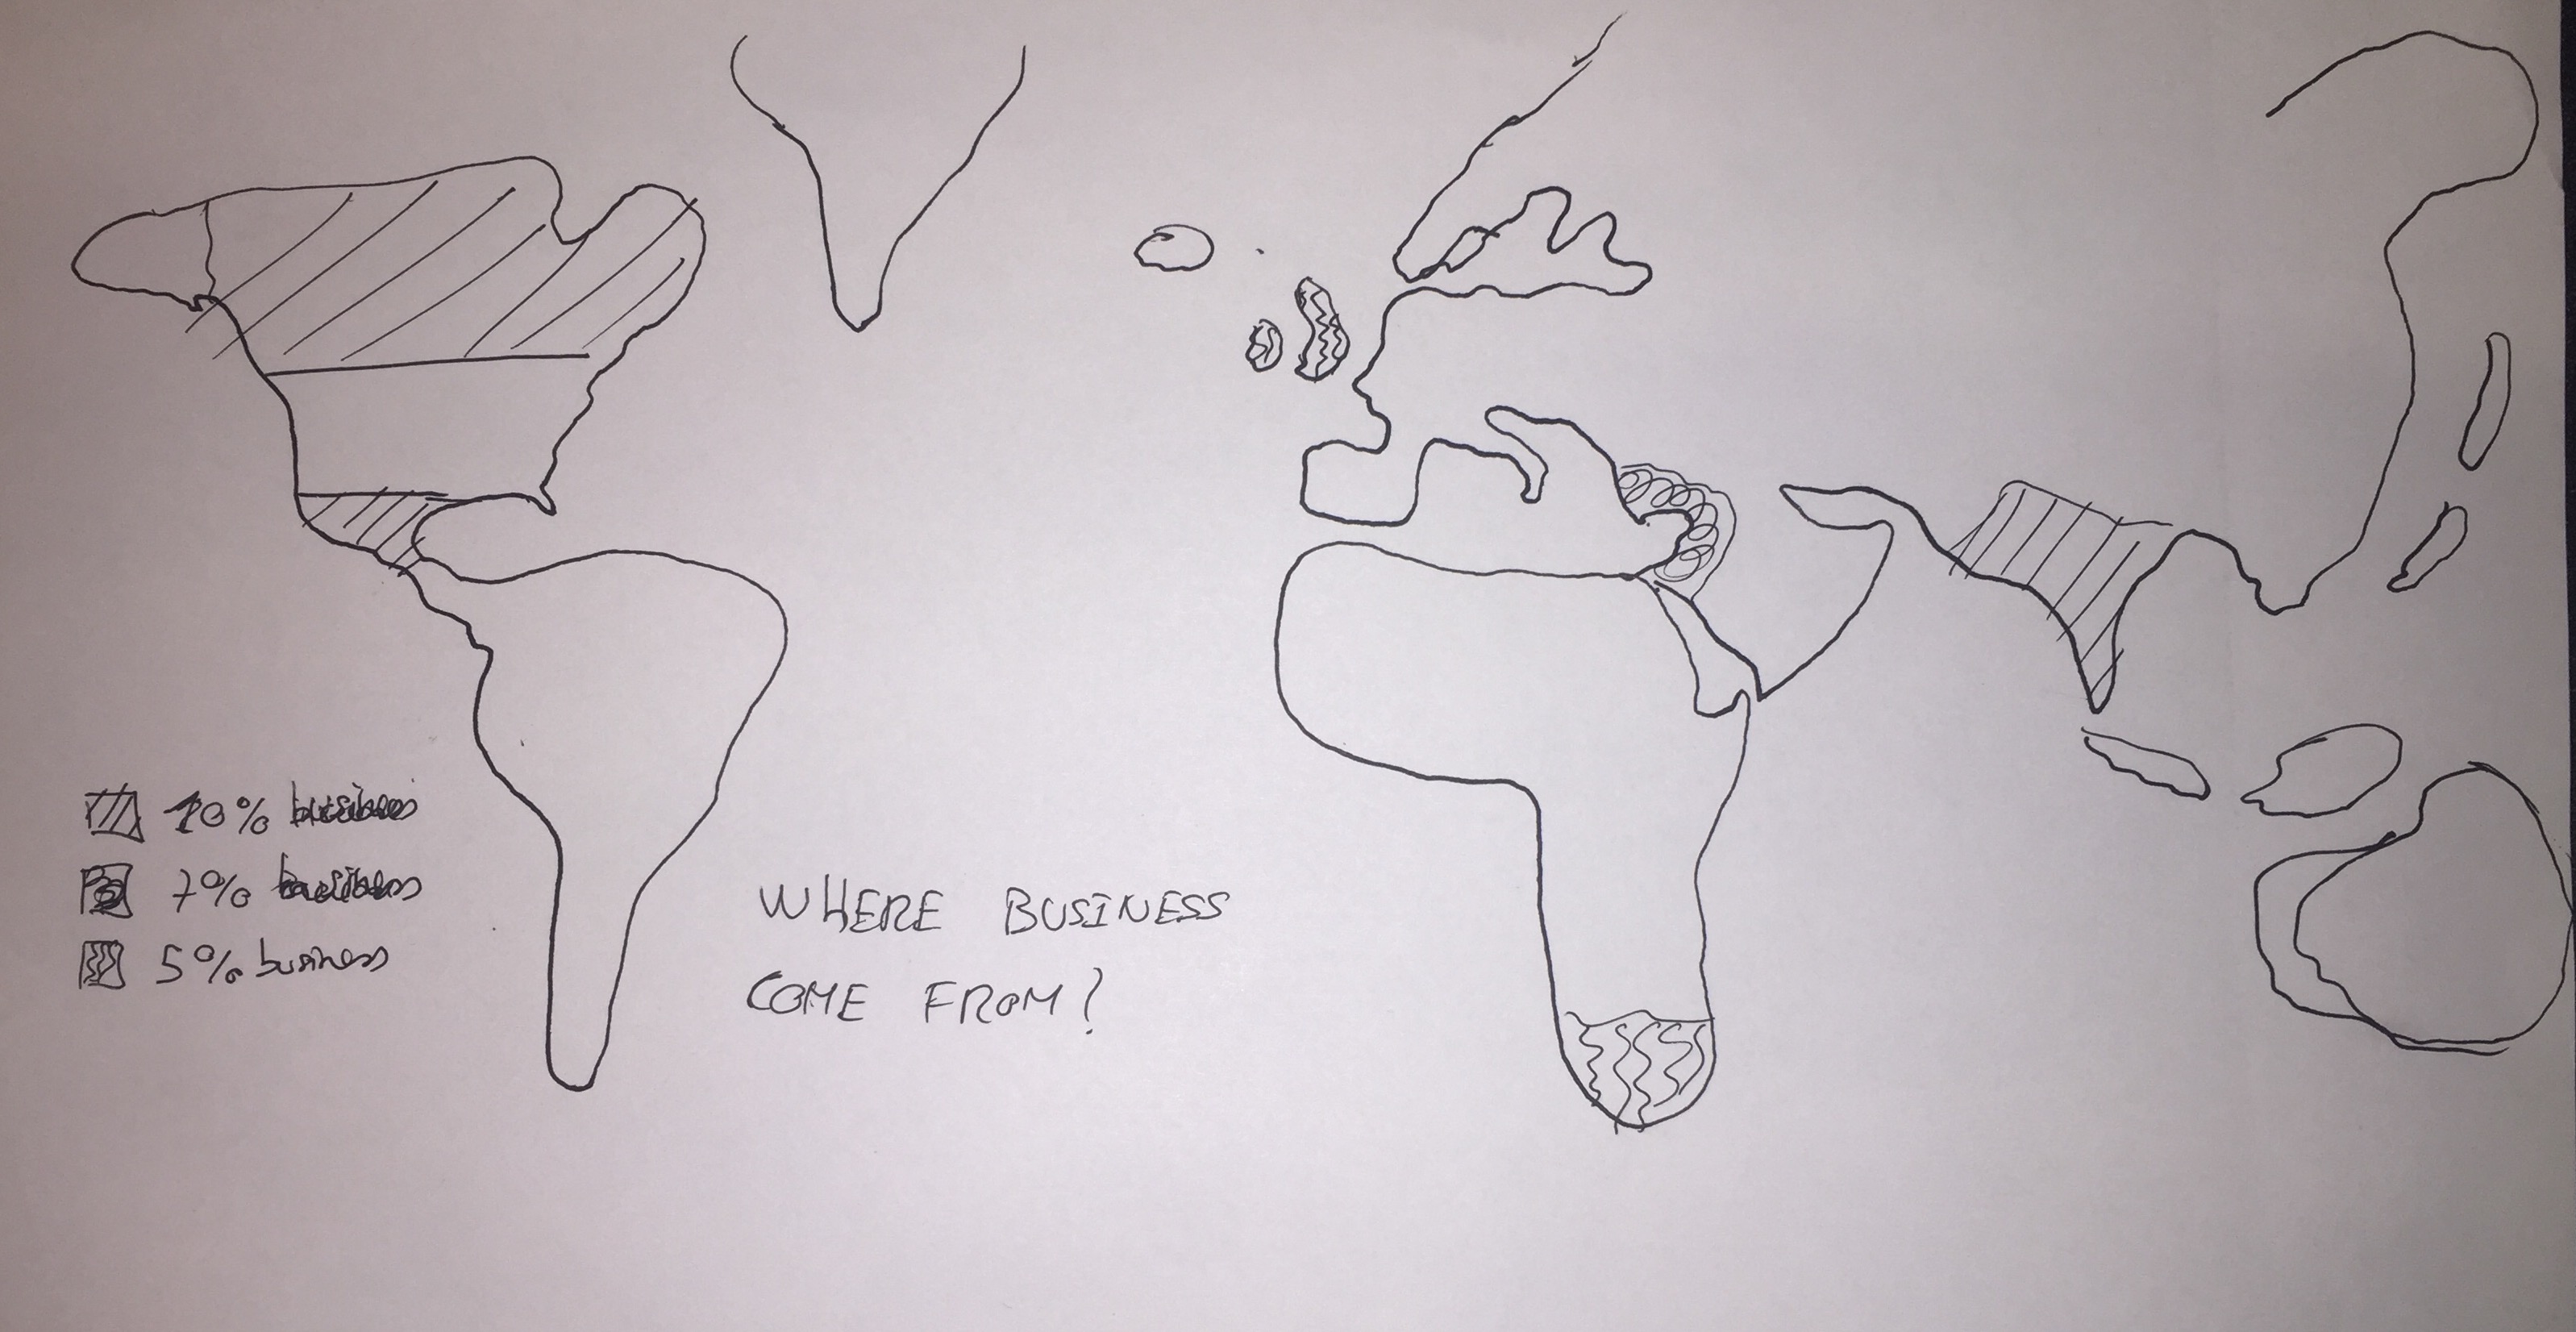 10% business
7% business
5% business
WHERE BUSINESS
COME FROM?